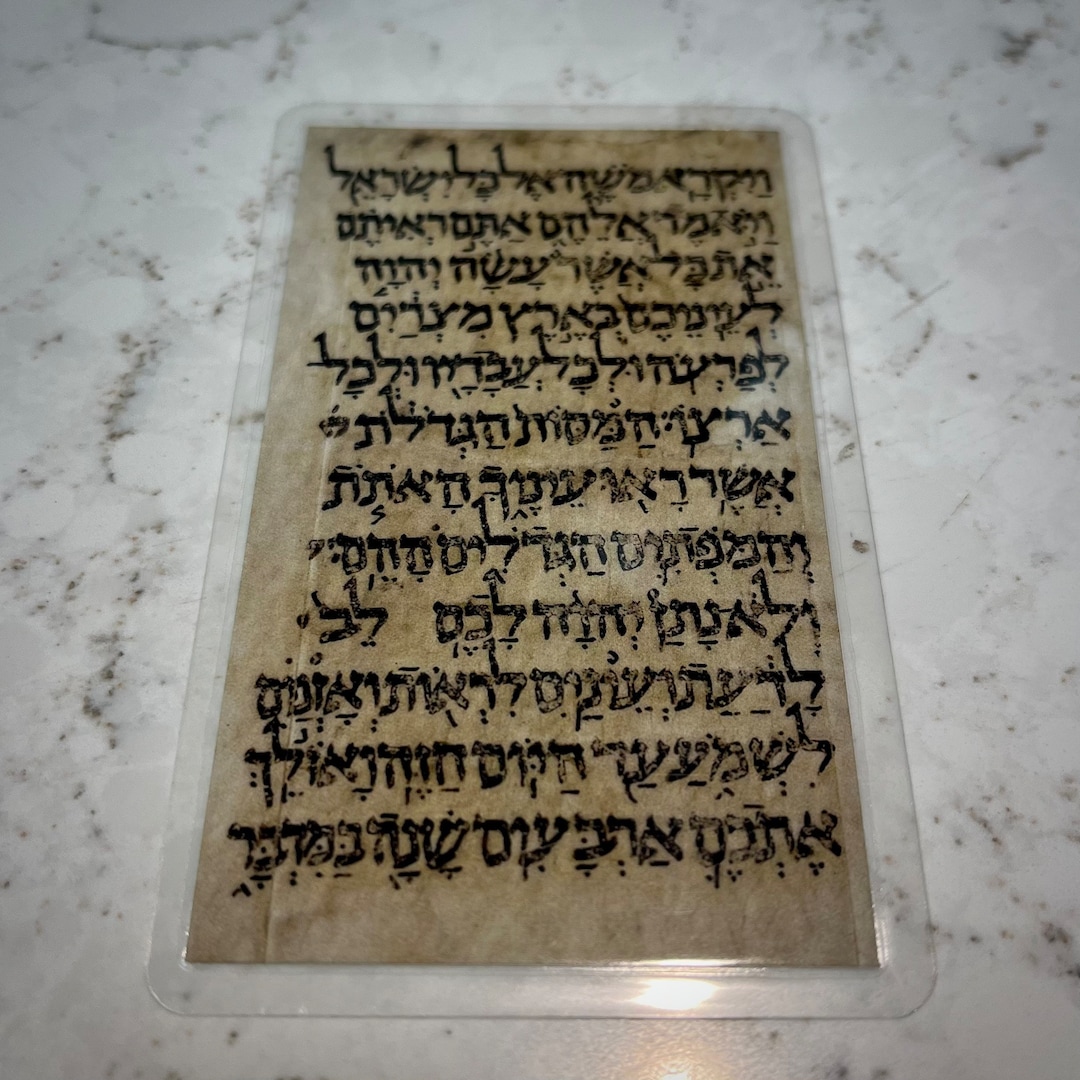 וַיִּקְרָא מֹשֶׁה אֶל כָּל יִשְׂרָאֵל
וַיֹּאמֶר אֲלֵהֶם אַתֶּם רְאִיתֶם
אֵת כָּל אֲשֶׁר עָשָׂה יְהוָה
לְעֵינֵיכֶם בְּאֶרֶץ מִצְרַיִם
לְפַרְעֹה וּלְכָל עֲבָדָיו וּלְכָל
אַרְצוֹ׃ הַמַּסּוֹת הַגְּדֹלֹת
אֲשֶׁר רָאוּ עֵינֶיךָ הָאֹתֹת
וְהַמֹּפְתִים הַגְּדֹלִים הָהֵם׃
וְלֹא נָתַן יְהוָה לָכֶם לֵב
לָדַעַת וְעֵינַיִם לִרְאוֹת וְאָזְנַיִם
לִשְׁמֹעַ עַד הַיּוֹם הַזֶּה׃ וָאוֹלֵךְ
אֶתְכֶם אַרְבָּעִים שָׁנָה בַּמִּדְבָּר